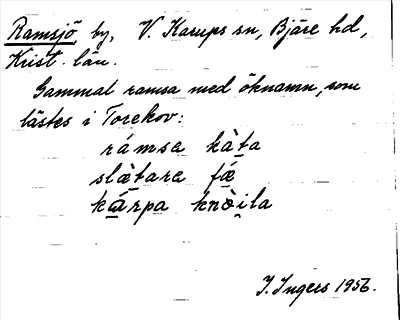 Ramsjö, by, V. Karups sn, Bjäre hd,
Krist. län.
Gammal ramsa med öknamn, som
lästes i Torekov:
rámsa kàta
slætara fǽ
kárpa knòila
I. Ingers 1956.